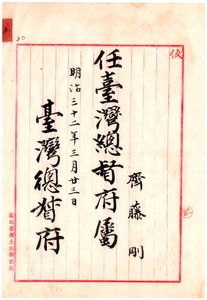 仮
齊藤剛
任臺灣總督府屬
明治三十二年三月廿三日
臺灣總督府